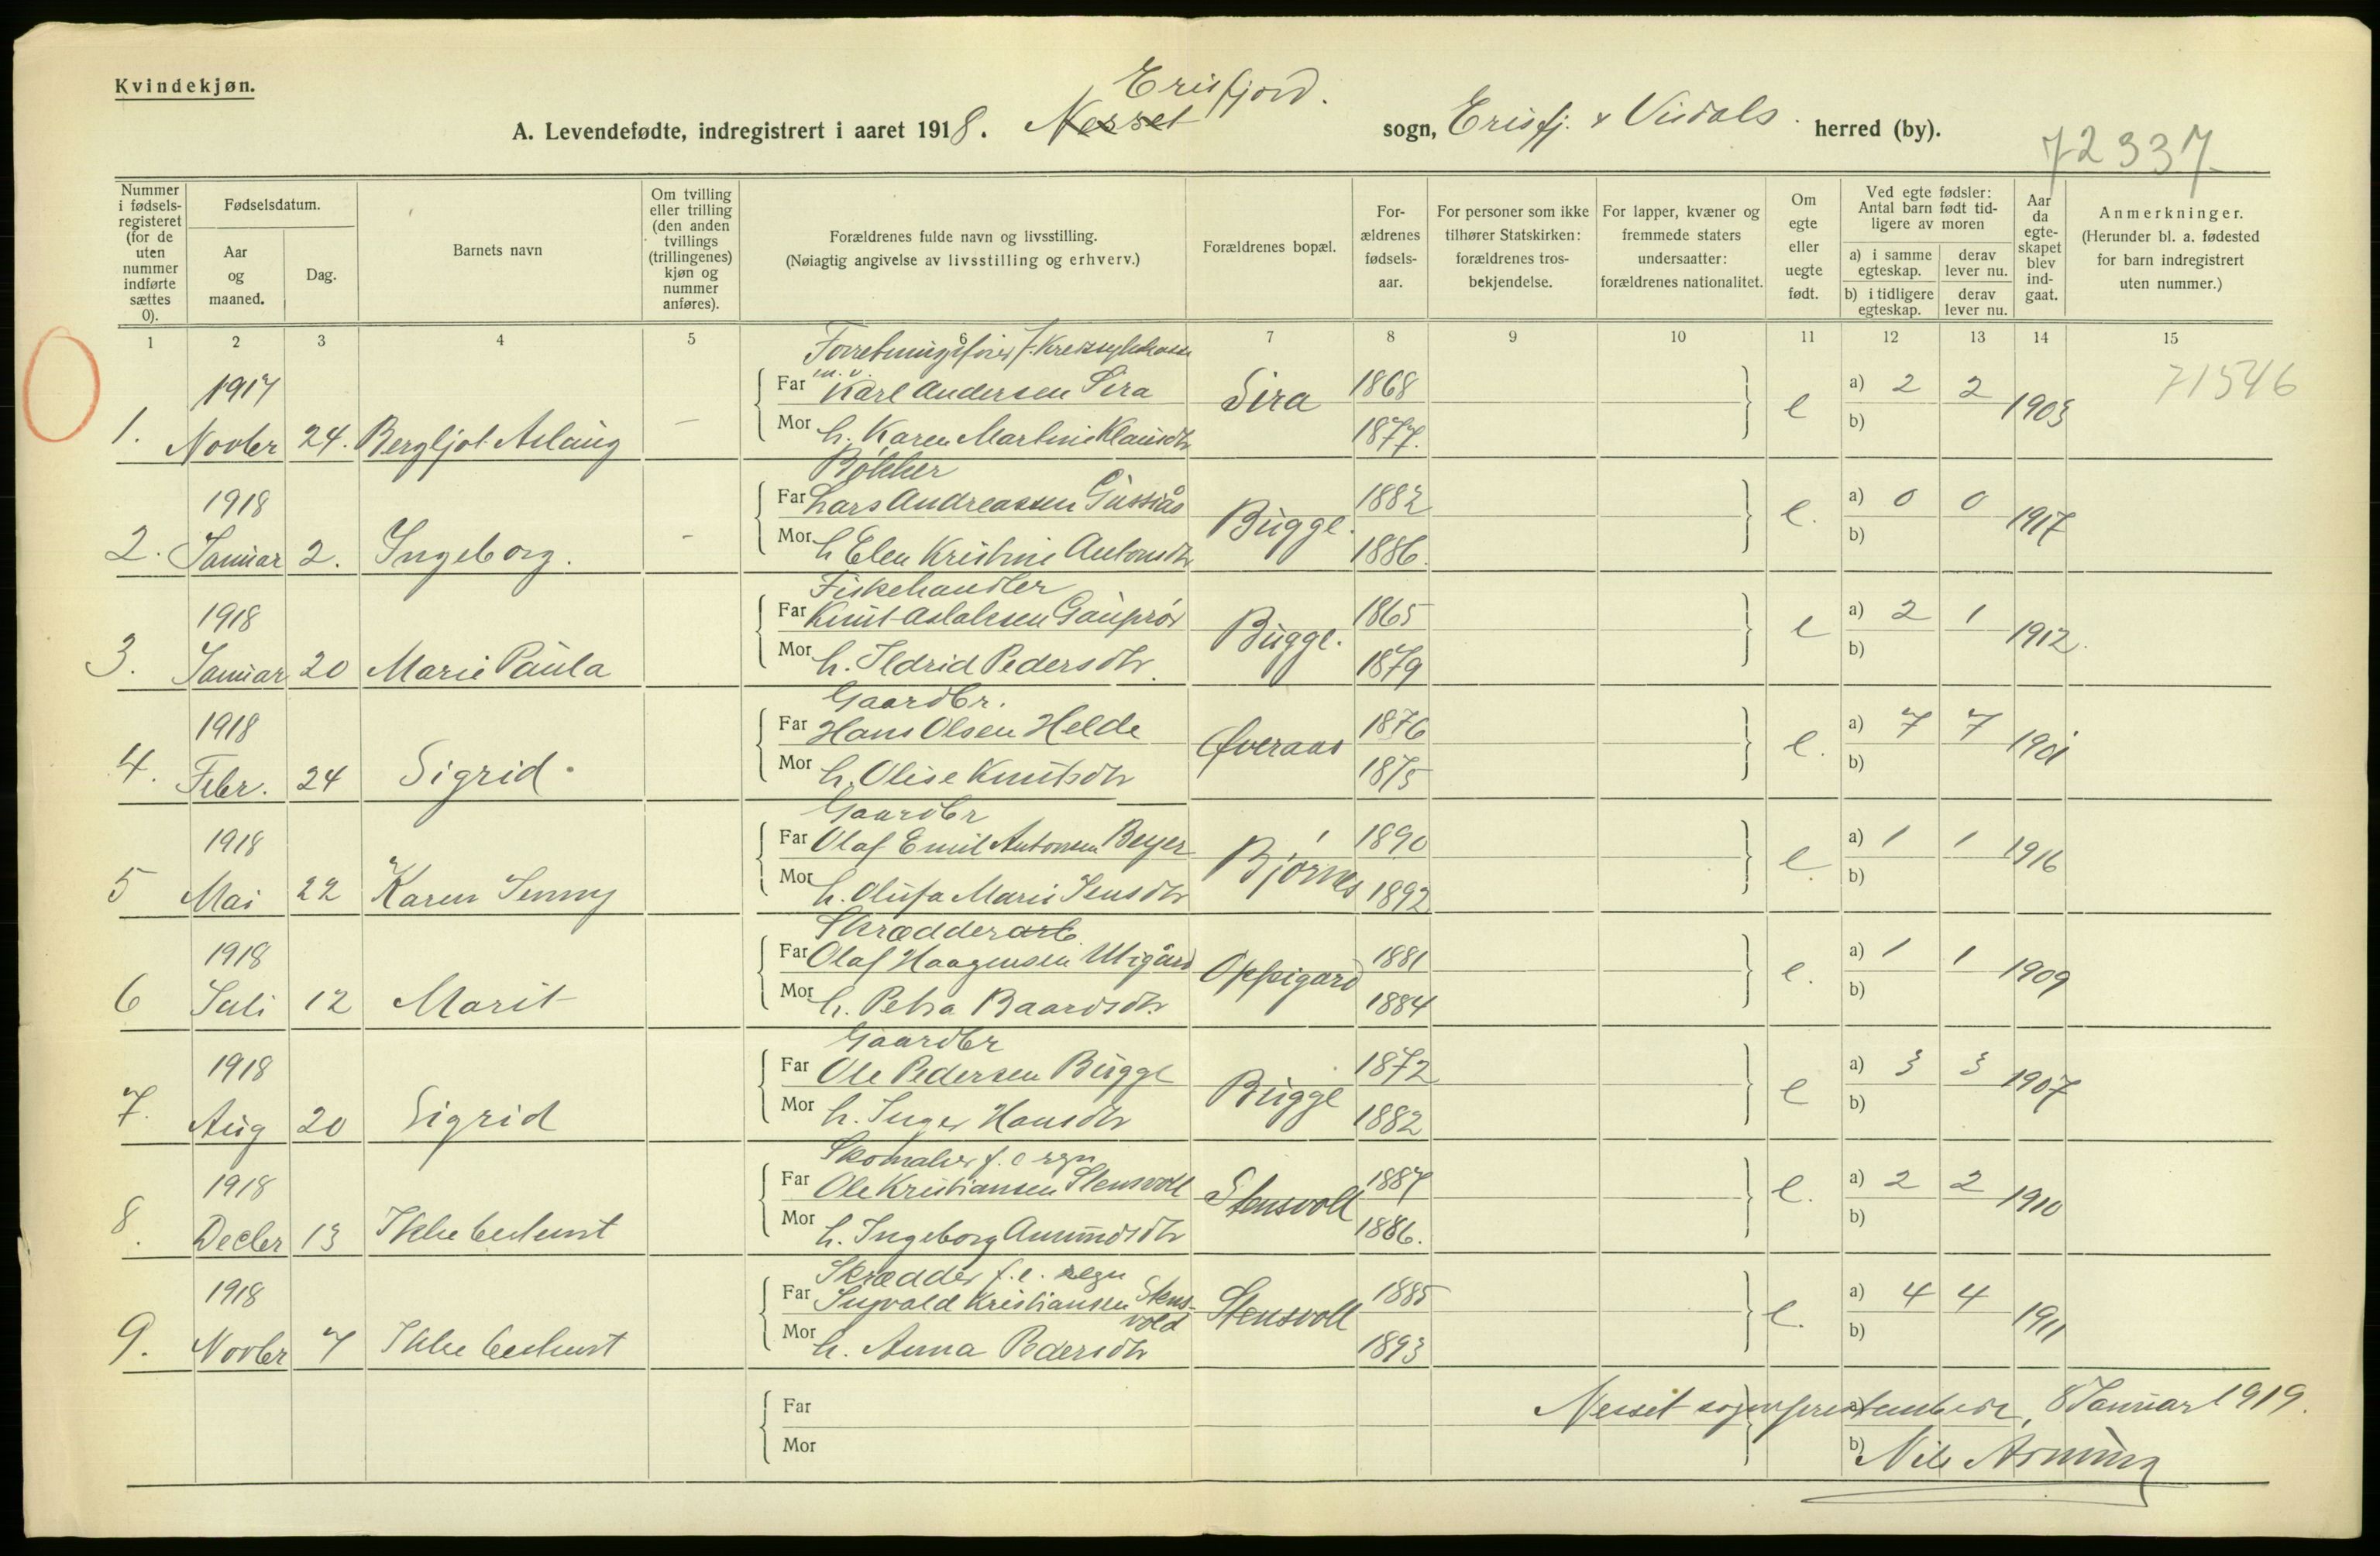 Kvindekjøn.
Erisfjord.
A. Levendefødte, indregistrert i aaret 1918. Nesset sogn, Erisfj. & Visdals herred (by).
72337
Nummer i fødsels-registeret (for de uten nummer indførte sættes 0).
Fødselsdatum.
Aar og maaned.
Dag.
Barnets navn
Om tvilling eller trilling (den anden tvillings (trillingenes) kjøn og nummer anføres).
Forældrenes fulde navn og livsstilling.
(Nøiagtig angivelse av livsstilling og erhverv.)
Forældrenes bopæl.
For-ældrenes fødsels-aar.
For personer som ikke tilhører Statskirken: forældrenes tros-bekjendelse.
For lapper, kvæner og fremmede staters undersaatter: forældrenes nationalitet.
Om egte eller uegte født.
Ved egte fødsler: Antal barn født tid-ligere av moren
a) i samme egteskap. derav lever nu.
b) i tidligere egteskap. derav lever nu.
Aar da egte-skapet blev ind-gaat.
Anmerkninger.
(Herunder bl. a. fødested for barn indregistrert uten nummer.)
1 2 3 4 5 6 7 8 9 10 11 12 13 14 15
Forretningsfører f. Kredssykekasse
m. v.
1917 Far Karl Andersen Sira Sira 1868 a) 2 2 1903 71546
1. Novbr 24. Bergljot Aslaug – Mor h. Karen Martine Klausdtr 1877. e b)
Bøkker
1918 Far Lars Andreassen Gussiås Bugge. 1882 a) 0 0 1917
2. Januar 2. Ingeborg. – Mor h Elen Kristine Antonsdtr 1886. e. b)
Fiskehandler
1918 Far Knut Aslaksen Gauprør Bugge. 1865 a) 2 1 1912.
3. Januar 20 Marie Paula Mor h. Ildrid Pedersdtr. 1879 e b)
Gaardbr.
1918 Far Hans Olsen Helde Øveraas 1876 a) 7 7 1901
4. Febr. 24 Sigrid. Mor h. Olise Knutsdtr 1875 e. b)
Gaardbr
1918 Far Olaf Emil Antonsen Beyer Bjørnes 1890 a) 1 1 1916
5 Mai 22 Karen Jenny Mor h. Olufa Marie Jensdtr 1892 e. b)
Skrædderarb.
1918 Far Olaf Haagensen Utigård Oppigard 1881 a) 1 1 1909
6 Juli 12 Marit Mor h. Petra Baardsdtr. 1884 e. b)
Gaardbr
1918 Far Ole Pedersen Bugge Bugge 1872 a) 3 3 1907
7. Aug 20 Sigrid Mor h. Inger Hansdtr 1882 e b)
Skomaker f. e regn
1918 Far Ole Kristiansen Stensvold Stensvold 1887 a) 2 2 1910
8. Decbr 13 Ikke bestemt Mor h. Ingeborg Amundsdtr 1886. e. b)
Skrædder f. e. regn
1918 Far Ingvald Kristiansen Stens-vold Stensvold 1885 a) 4 4 1911
9. Novbr 7 Ikke bestemt Mor h. Anna Pedersdtr 1893 e. b)
Far a) Nesset sogneprestembede, 8 Januar 1919.
Mor b) Nils